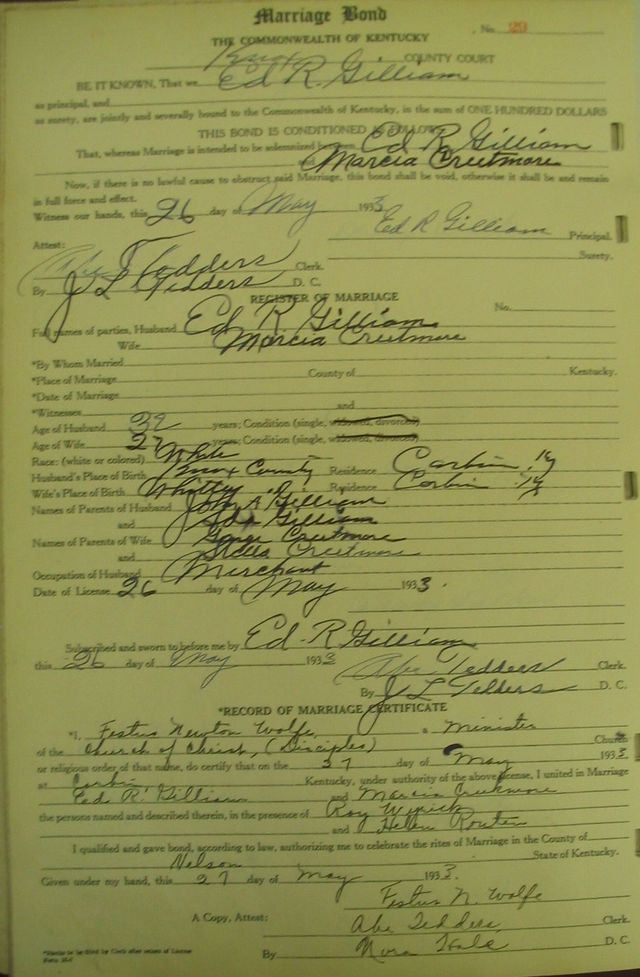 Marriage Bond
No. 29
THE COMMONWEALTH OF KENTUCKY
Knox COUNTY COURT
BE IT KNOWN, That we Ed R. Gilliam
as principal, and
as surety, are jointly and severally bound to the Commonwealth of Kentucky, in the sum of ONE HUNDRED DOLLARS
THIS BOND IS CONDITIONED AS FOLLOWS:
That, whereas Marriage is intended to be solemnized between Ed R Gilliam
and Marcia Creetmore
Now, if there is no lawful cause to obstruct said Marriage, this bond shall be void, otherwise it shall be and remain
in full force and effect.
Witness our hands, this 26 day of May 1933
Ed R Gilliam Principal.
Attest: Surety.
Abe Tedders Clerk.
By J L Tedders D. C.
REGISTER OF MARRIAGE
No.
Full names of parties, Husband Ed R Gilliam
Wife Marcia Creetmore
*By Whom Married
*Place of Marriage County of Kentucky.
*Date of Marriage
*Witnesses and
Age of Husband 32 years; Condition (single, widowed, divorced)
Age of Wife 27 years; Condition (single, widowed, divorced)
Race: (white or colored) White
Husband's Place of Birth Knox County Residence Corbin, Ky
Wife's Place of Birth Whitley Residence Corbin Ky
Names of Parents of Husband John A Gilliam
and Gilliam
Names of Parents of Wife George Creetmore
and Stella Creetmore
Occupation of Husband Merchant
Date of License 26 day of May 1933.
Subscribed and sworn to before me by Ed R Gilliam
this 26 day of May 1933
Abe Tedders Clerk.
By J L Tedders D. C.
*RECORD OF MARRIAGE CERTIFICATE
*I, Festus Newton Wolfe, a Minister
of the Church of Christ, (Disciples) Church
or religious order of that name, do certify that on the 27 day of May 1933
at Corbin Kentucky, under authority of the above license, I united in Marriage
Ed R. Gilliam and Marcia Creekmore
the persons named and described therein, in the presence of Roy Wyrick
and Helen Routen
I qualified and gave bond, according to law, authorizing me to celebrate the rites of Marriage in the County of
Nelson State of Kentucky.
Given under my hand, this 27 day of May 1933.
Festus N. Wolfe
A Copy, Attest: Abe Tedders, Clerk.
By Nora Hale D. C.
*Blanks to be filled by Clerk after return of License